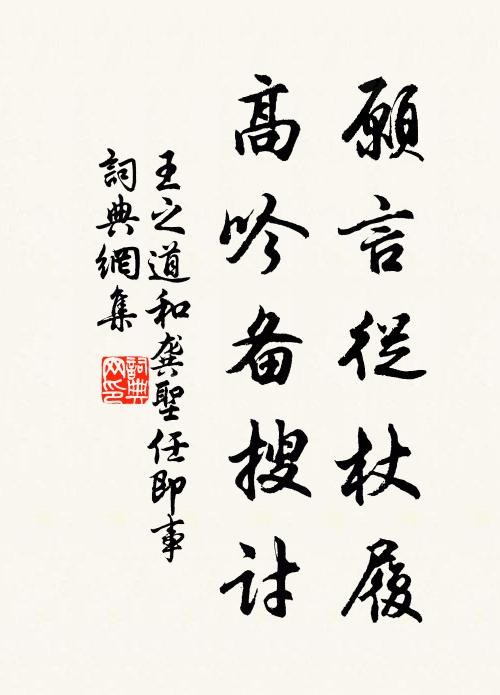 願言從杖履
高吟备搜討
王之道和龔聖任即事
詞典網集
詞典网印